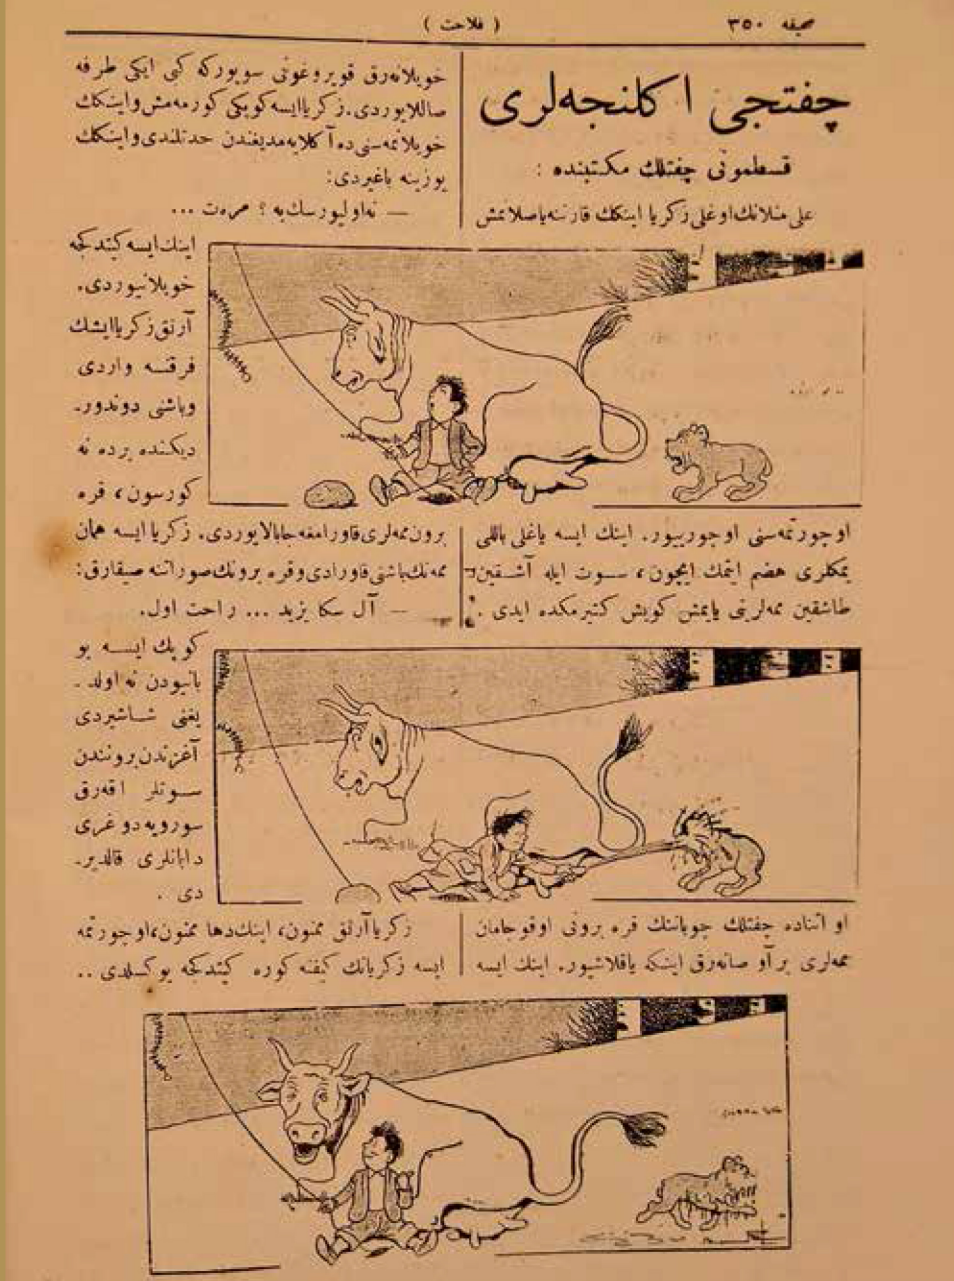 صحیفه ۳۵۰
( فلاحت )
چفتجی اكلنجه‌لری
قسطمونی چفتلك مكتبنده :
علی منلانك اوغلی زكریا اینكك قارننه یاصلانمش
اوچورتمه‌سنی اوچورییور. اینك ایسه یاغلی باللی
یمكلری هضم ایتمك ایچون، سوت ایله آشقین
طاشقین ممه‌لرینی یایمش كویش كتیرمكده ایدی .
او اثناده چفتلك چوبانینك قره برونی او قوجامان
ممه‌لری بر آو صانه‌رق اینكه یاقلاشیور. اینك ایسه
خویلانه‌رق قویروغونی سوپوركه كبی ایكی طرفه
صاللایوردی. زكریا ایسه كوپكی كورمه‌مش و اینكك
خویلانمه‌سنی ده آكلایه‌مدیغندن حدتلندی و اینكك
یوزینه باغیردی:
— نه اولیورسك به ؟ مره‌ت ...
اینك ایسه كیتدكجه
خویلانیوردی.
آرتق زكریا ایشك
فرقنه واردی
و باشنی دوندور-
دیكنده برده نه
كورسون، قره
برون ممه‌لری قاورامغه چابالایوردی. زكریا ایسه همان
ممه‌نك باشنی قاورادی و قره برونك صوراتنه صیقارق:
— آل سكا یزید ... راحت اول.
كوپك ایسه بو
بانیودن نه اولد-
یغنی شاشیردی
آغزندن برونندن
سوتلر اقه‌رق
سورویه دوغری
دابانلری قالدیر-
دی .
زكریا آرتق ممنون، اینك دها ممنون، اوچورتمه
ایسه زكریانك كیفنه كوره كیتدكجه یوكسلدی ..